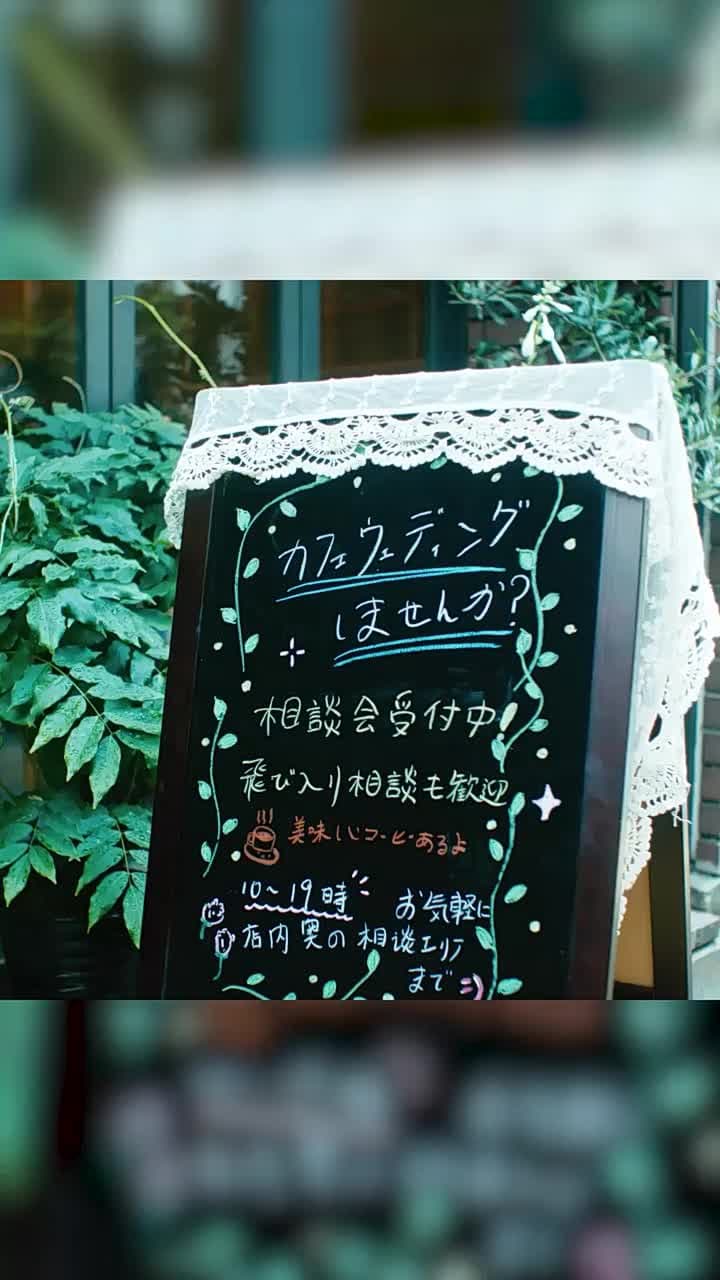 カフェウェディング
しませんか?
相談会受付中!
飛び入り相談も歓迎
美味しいコーヒーあるよ
10～19時
お気軽に
店内奥の相談エリア
まで